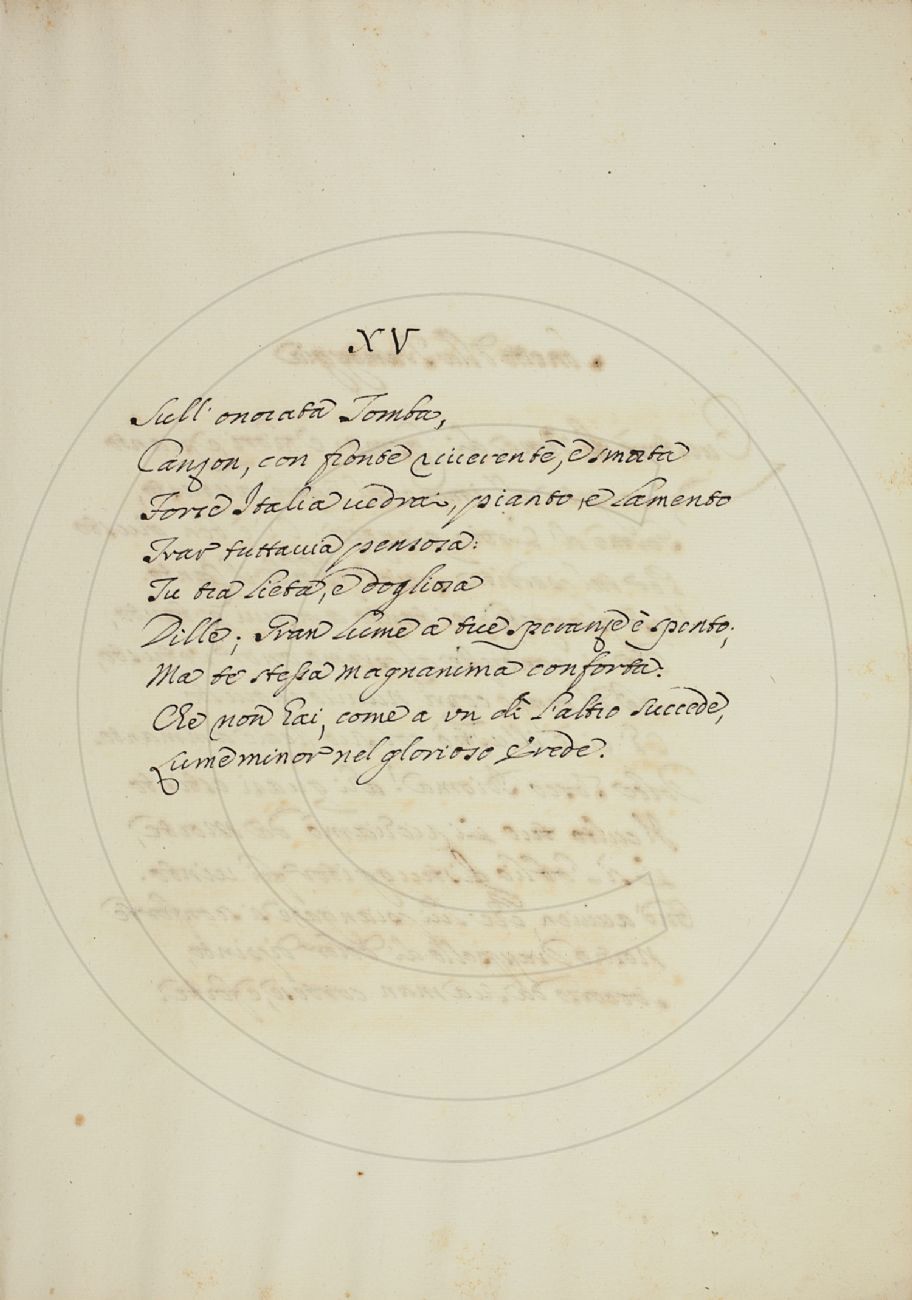 XV
Sull' onorata Tomba,
Canzon, con fronte riverente, e smorta
Forse Italia vedrai, pianto, e lamento
Trar tuttavia pensosa:
Tu tra lieta, e dogliosa
Dille; Gran Lume a tue speranze è spento;
Ma te stessa magnanima conforta.
Che non hai, come a un dì l'altro succede,
Lume minor nel glorioso Erede.